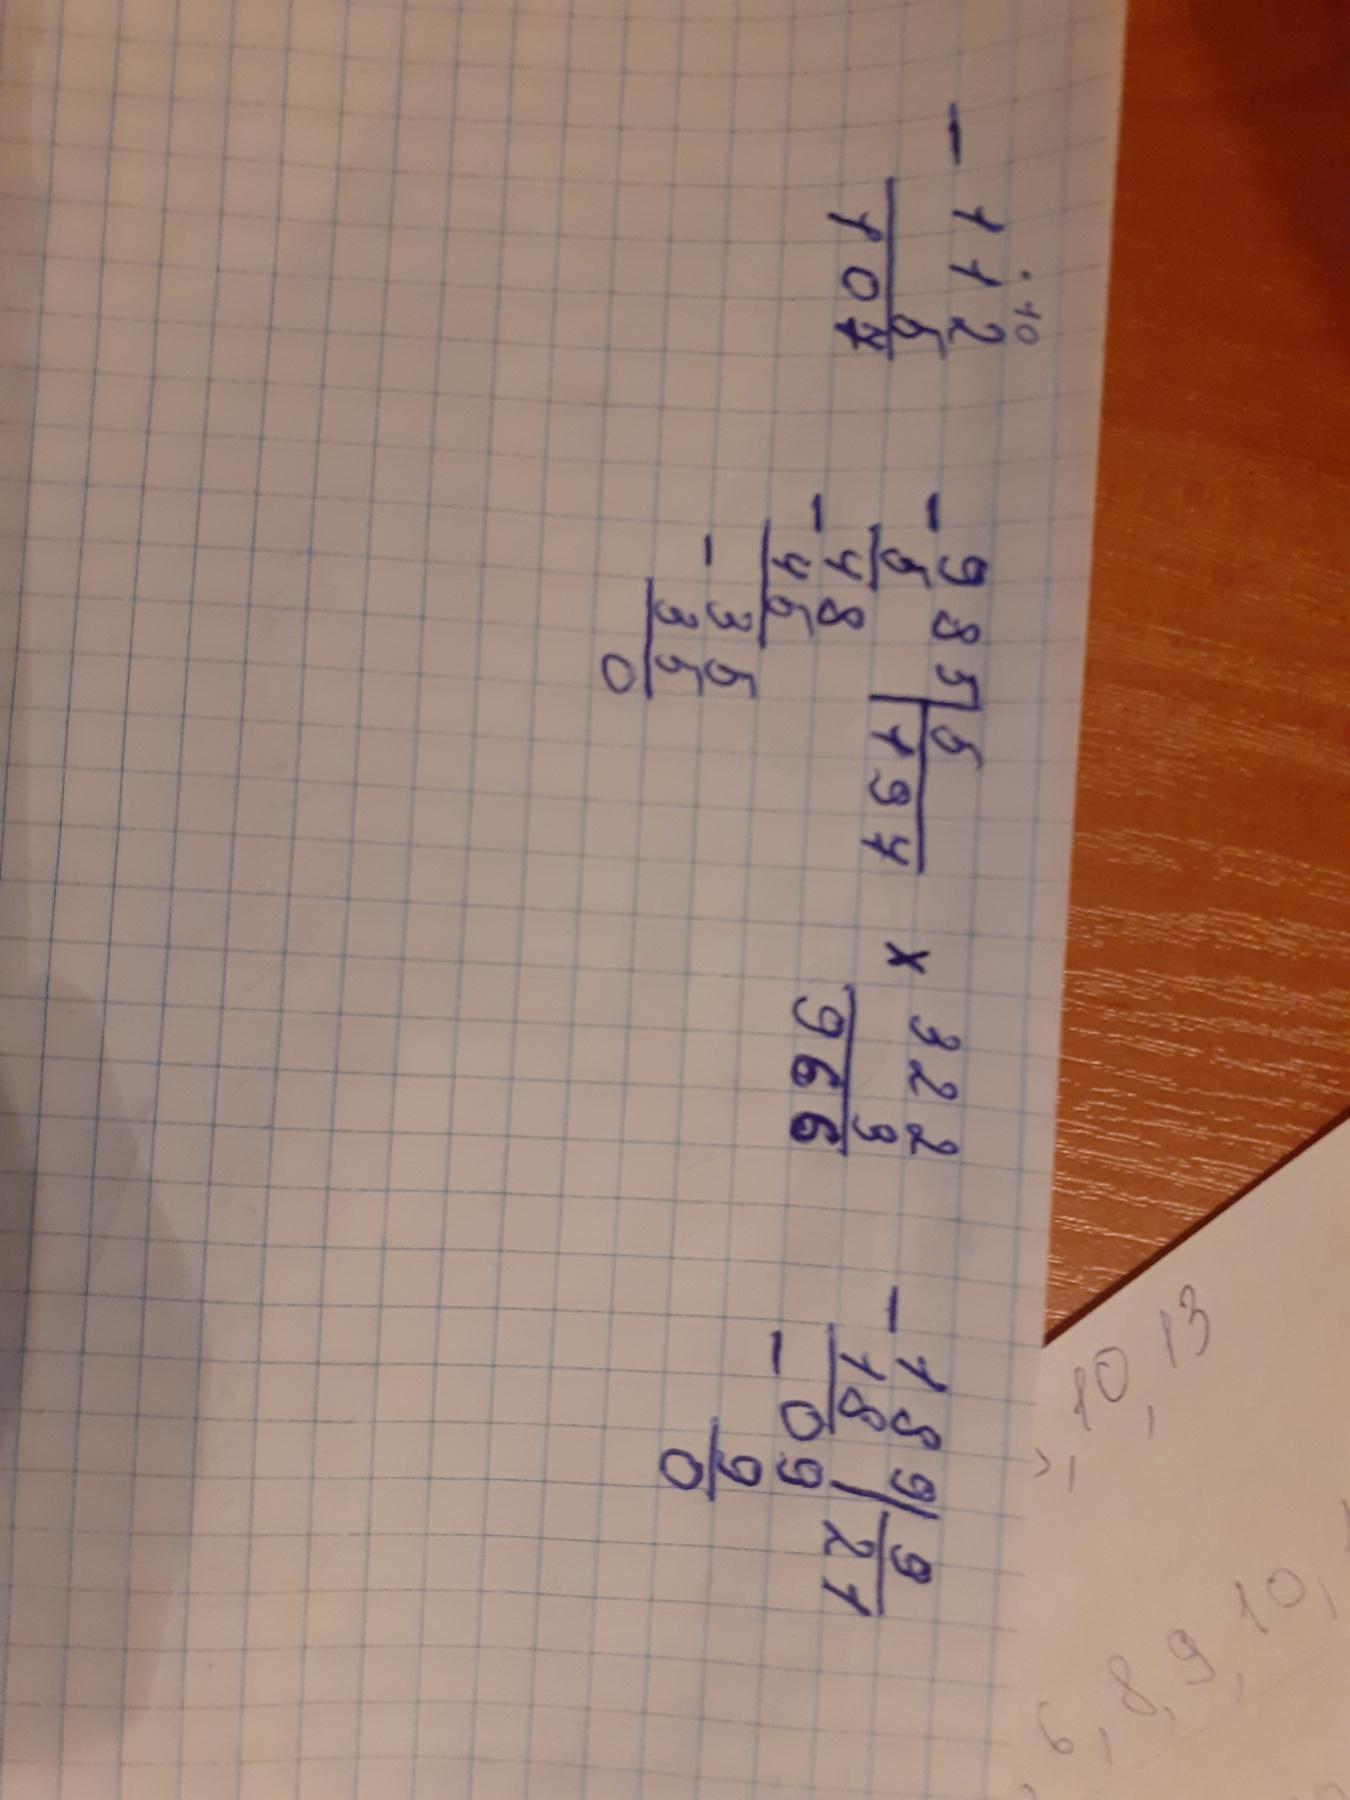 · 10
- 112
5
107
- 985 | 5
5 | 197
- 48
45
- 35
35
0
× 322
3
966
- 189 | 9
18 | 21
- 09
9
0
10, 13
6, 8, 9, 10,